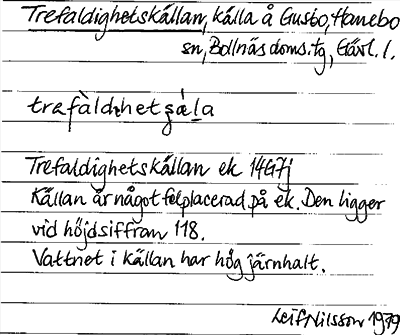 Trefaldighetskällan, källa å Gusbo, Hanebo
sn, Bollnäs doms. tg, Gävl. l.
trefàldıhetʂǽla
Trefaldighetskällan ek 14G7j
Källan är något felplacerad på ek. Den ligger
vid höjdsiffran 118.
Vattnet i källan har hög järnhalt.
Leif Nilsson 1979